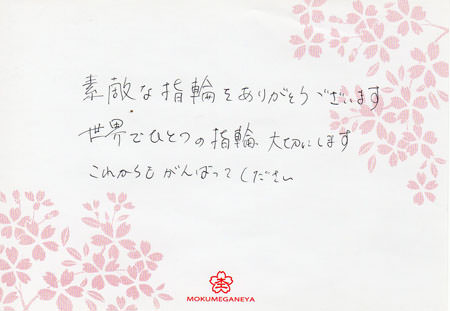 素敵な指輪をありがとうございます
世界でひとつの指輪、大切にします
これからもがんばってください
MOKUMEGANEYA